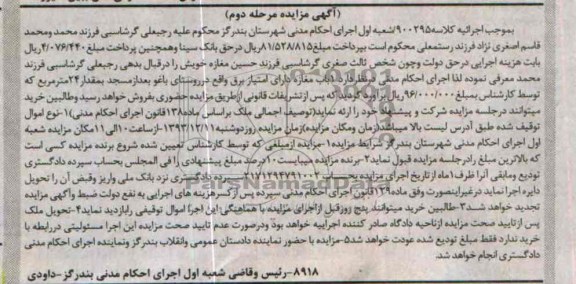 (آگهی مزایده مرحله دوم)
بموجب اجرائیه کلاسه ۹۰۰۲۹۵/شعبه اول اجرای احکام مدنی شهرستان بندرگز محکوم علیه رجبعلی گرشاسبی فرزند محمد ومحمد
قاسم اصغری نژاد فرزند رستمعلی محکوم است بپرداخت مبلغ ۸۱/۵۲۸/۸۱۵ریال درحق بانک سپنا وهمچنین پرداخت مبلغ ۴/۰۷۶/۴۴۰ریال
بابت هزینه اجرایی درحق دولت وچون شخص ثالث صغری گرشاسبی فرزند حسین مغازه خویش را درقبال بدهی رجبعلی گرشاسبی فرزند
محمد معرفی نموده لذا اجرای احکام مدنی درنظر دارد یکباب مغازه دارای امتیاز برق واقع درروستای باغو بعدازمسجد بمقدار ۲۴مترمربع که
توسط کارشناس بمبلغ ۹۶/۰۰۰/۰۰۰ریال برآورد گردیده که پس ازتشریفات قانونی ازطریق مزایده حضوری بفروش خواهد رسید وطالبین خرید
میتوانند درجلسه مزایده شرکت و پیشنهاد خود را ارئه نمایند(توصیف اجمالی ملک براساس ماده۱۳۸قانون اجرای احکام مدنی)۱-نوع اموال
توقیف شده طبق آدرس لیست بالا میباشد(زمان ومکان مزایده)زمان مزایده روزدوشنبه ۱۳۹۳/۱۲/۱۱-ازساعت۱۰الی۱۱مکان مزایده شعبه
اول اجرای احکام مدنی شهرستان بندرگز شرایط مزایده۱-مزایده ازمبلغی که توسط کارشناس تعیین شده شروع برنده مزایده کسی است
که بالاترین مبلغ رادرجلسه مزایده قبول نماید۲-برنده مزایده میبایست۱۰درصد مبلغ پیشنهادی را فی المجلس بحساب سپرده دادگستری
تودیع ومابقی آنرا ظرف۱ماه ازتاریخ اجرای مزایده بحساب ۲۱۷۱۲۹۴۷۹۱۰۰۲ سپرده دادگستری نزد بانک ملی واریز وقبض آن را تحویل
دایره اجرا نماید درغیراینصورت وفق ماده۱۲۹قانون اجرای احکام مدنی سپرده پس ازکسرهزینه های اجرایی به نفع دولت ضبط وآگهی مزایده
تجدید خواهد شد۳-طالبین خرید میتوانند پنج روزقبل ازاجرای مزایده با هماهنگی این اجرا اموال توقیفی رابازدید نماید۴-تحویل ملک
پس ازتایید صحت مزایده ازناحیه دادگاه صادر کننده اجراییه خواهد بود ودرصورت عدم تایید صحت مزایده این اجرا مسئولیتی دررابطه با
خرید ندارد فقط مبلغ تودیع شده عودت خواهد شد۵-مزایده با حضور نماینده دادستان عمومی وانقلاب بندرگز ونماینده اجرای احکام مدنی
دادگستری انجام خواهد شد.
۸۹۱۸-رئیس وقاضی شعبه اول اجرای احکام مدنی بندرگز-داودی